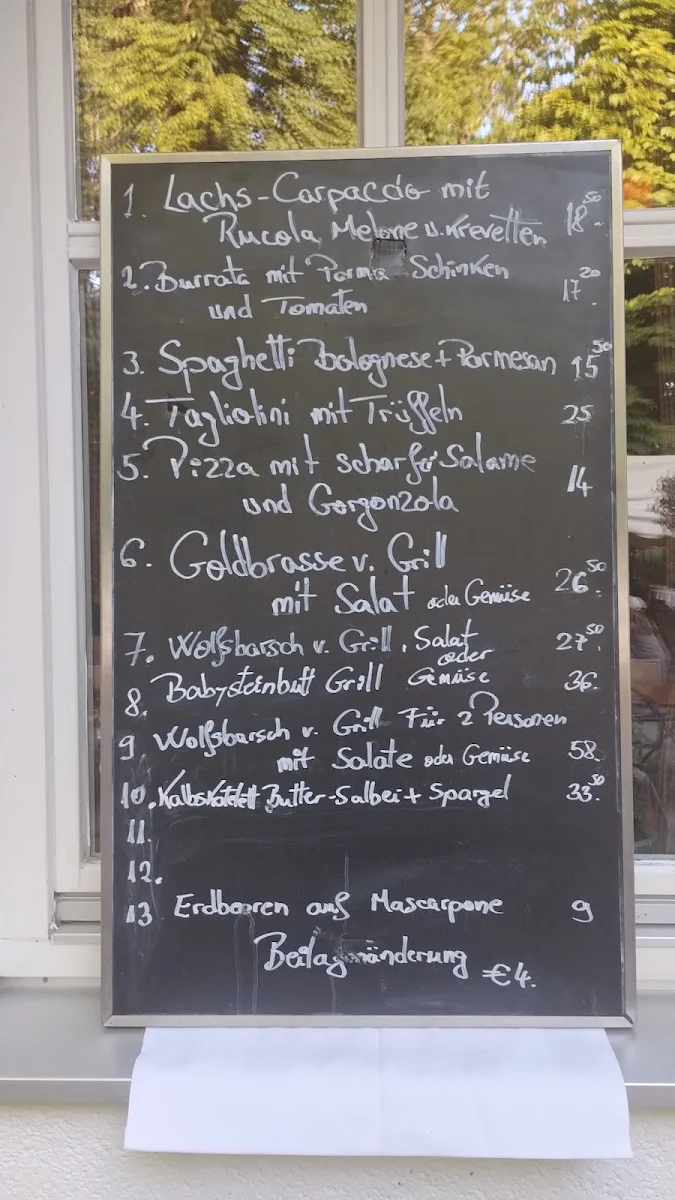 1. Lachs-Carpaccio mit 18.50
Rucola, Melone u. Krevetten
2. Burrata mit Parma Schinken 17.20
und Tomaten
3. Spaghetti Bolognese + Parmesan 15.50
4. Tagliolini mit Trüffeln 25
5. Pizza mit scharfer Salame 14
und Gorgonzola
6. Goldbrasse v. Grill 26.50
mit Salat oder Gemüse
7. Wolfsbarsch v. Grill, Salat 27.50
oder
8. Babysteinbutt Grill Gemüse 36.
9 Wolfsbarsch v. Grill Für 2 Personen
mit Salate oder Gemüse 58.
10. Kalbskotelett Butter-Salbei + Spargel 33.50
11.
12.
13 Erdbeeren auf Mascarpone 9
Beilagenänderung €4.